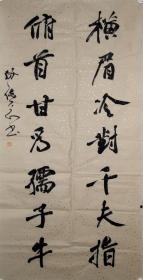 橫眉冷對千夫指
俯首甘为孺子牛